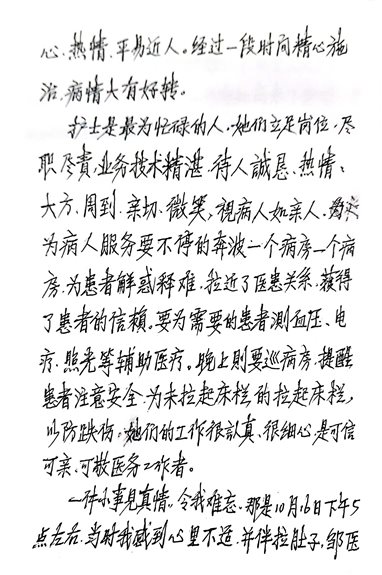 心、热情、平易近人。经过一段时间精心施
治、病情大有好转。
护士是最为忙碌的人，她们立足岗位，尽
职尽責，业务技术精湛，待人誠恳、热情、
大方、周到、亲切、微笑，視病人如亲人，
为病人服务要不停的奔波一个病房一个病
房，为患者解惑釋难，拉近了医患关系，获得
了患者的信赖。要为需要的患者測血压、电
疗、照光等辅助医疗。晚上則要巡病房，提醒
患者注意安全，为未拉起床栏的拉起床栏，
以防跌伤，她们的工作很認真、很细心是可信
可亲、可敬医务工作者。
一件小事見真情。令我难忘。那是10月16日下午5
点左右，当时我感到心里不适，并伴拉肚子，邹医